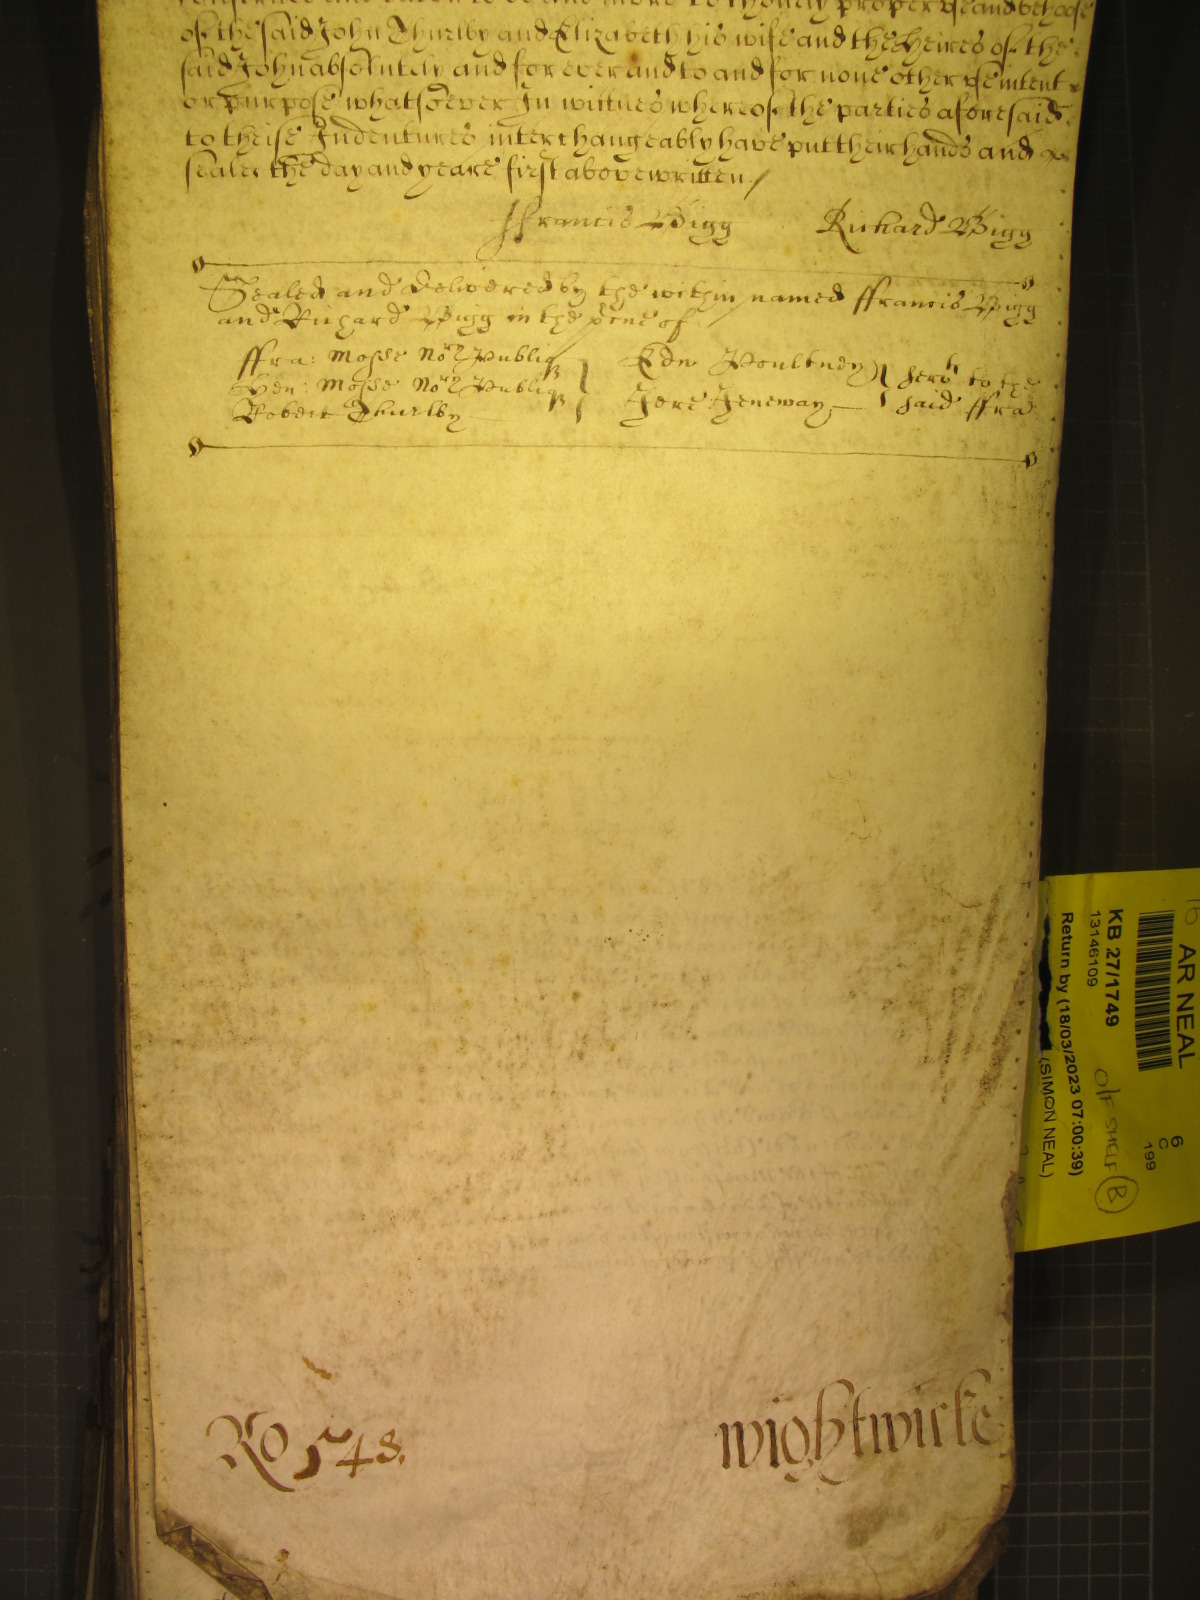 proper use and behoofe
of the said John Thurlby and Elizabeth his wife and the heires of the
said John absolutely and for ever and to and for none other use intent
or purpose whatsoever In wittnes whereof the parties aforesaid
to theise Indentures interchangeably have put their hands and
seales the day and yeare first above written
ffrancis Wigg Richard Wigg
Sealed and delivered by the within named ffrancis Wigg
and Richard Wigg in the p̃ence of
ffra: Mosse Nor̃ Publiq
Hen: Mosse Nor̃ Publiq
Robert Thurlby
Edw Poultney
Jere: Jeneway
servts to the
said ffra
Ro 548.
wightwicke
AR NEAL
KB 27/1749
13146109
Return by (18/03/2023 07:00:39)
(SIMON NEAL)
O/F SHELF B
6
C
199